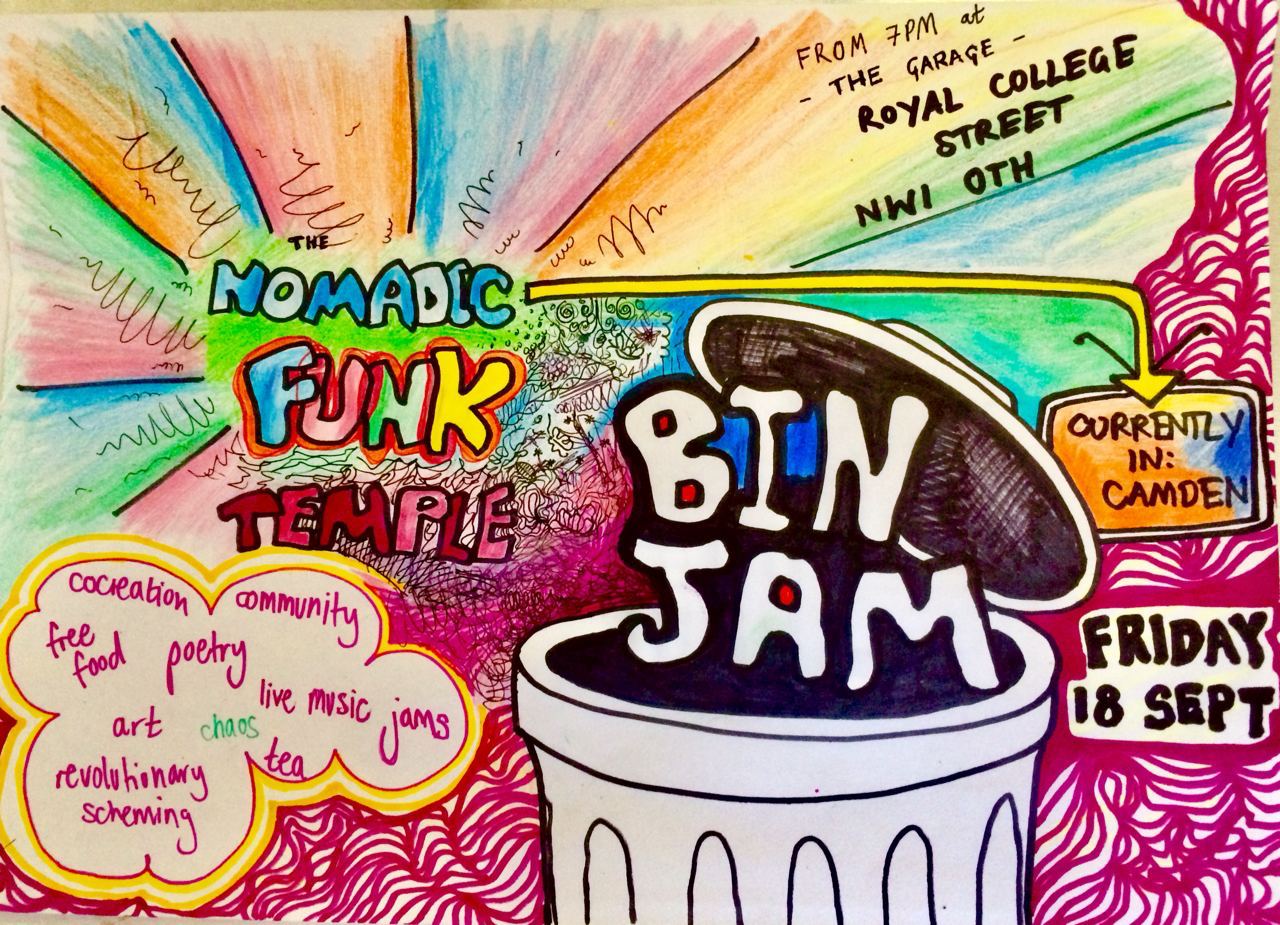 FROM 7PM at
- THE GARAGE -
ROYAL COLLEGE
STREET
NW1 0TH
THE
NOMADIC
FUNK
TEMPLE
BIN
JAM
CURRENTLY
IN:
CAMDEN
FRIDAY
18 SEPT
cocreation
community
free
food
poetry
live music jams
art
chaos
tea
revolutionary
scheming